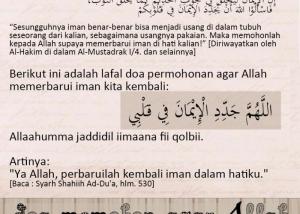 فَاسْأَلُوا اللَّهَ أَنْ يُجَدِّدَ الْإِيمَانَ فِي قُلُوبِكُمْ
"Sesungguhnya iman benar-benar bisa menjadi usang di dalam tubuh
seseorang dari kalian, sebagaimana usangnya pakaian. Maka memohonlah
kepada Allah supaya memperbarui iman di hati kalian!" [Diriwayatkan oleh
Al-Hakim di dalam Al-Mustadrak I/4. dan selainnya]
Berikut ini adalah lafal doa permohonan agar Allah
memerbarui iman kita kembali:
اللَّهُمَّ جَدِّدِ الْإِيمَانَ فِي قَلْبِي
Allaahumma jaddidil iimaana fii qolbii.
Artinya:
"Ya Allah, perbaruilah kembali iman dalam hatiku."
[Baca : Syarh Shahiih Ad-Du'a, hlm. 530]
doa memohon agar Allah